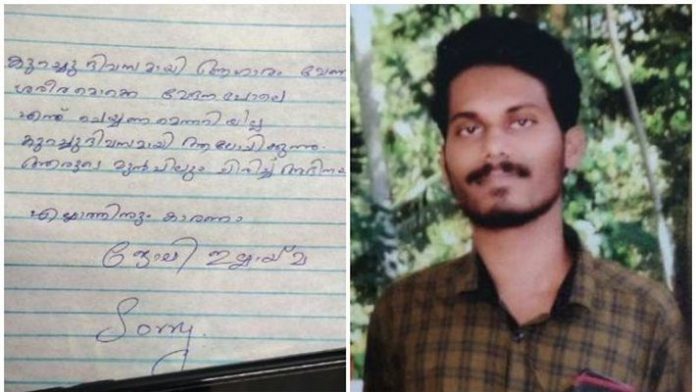 കുറച്ചു ദിവസമായി ആഹാരം വേണ്ട
ശരീരമൊക്കെ വേദനപോലെ
എന്ത് ചെയ്യണമെന്നറിയില്ല
കുറച്ചുദിവസമായി ആലോചിക്കുന്നു.
മുൻപിലും ചിരിച്ച്
എല്ലാത്തിനും കാരണം
ജോലി ഇല്ലായ്മ
Sorry.